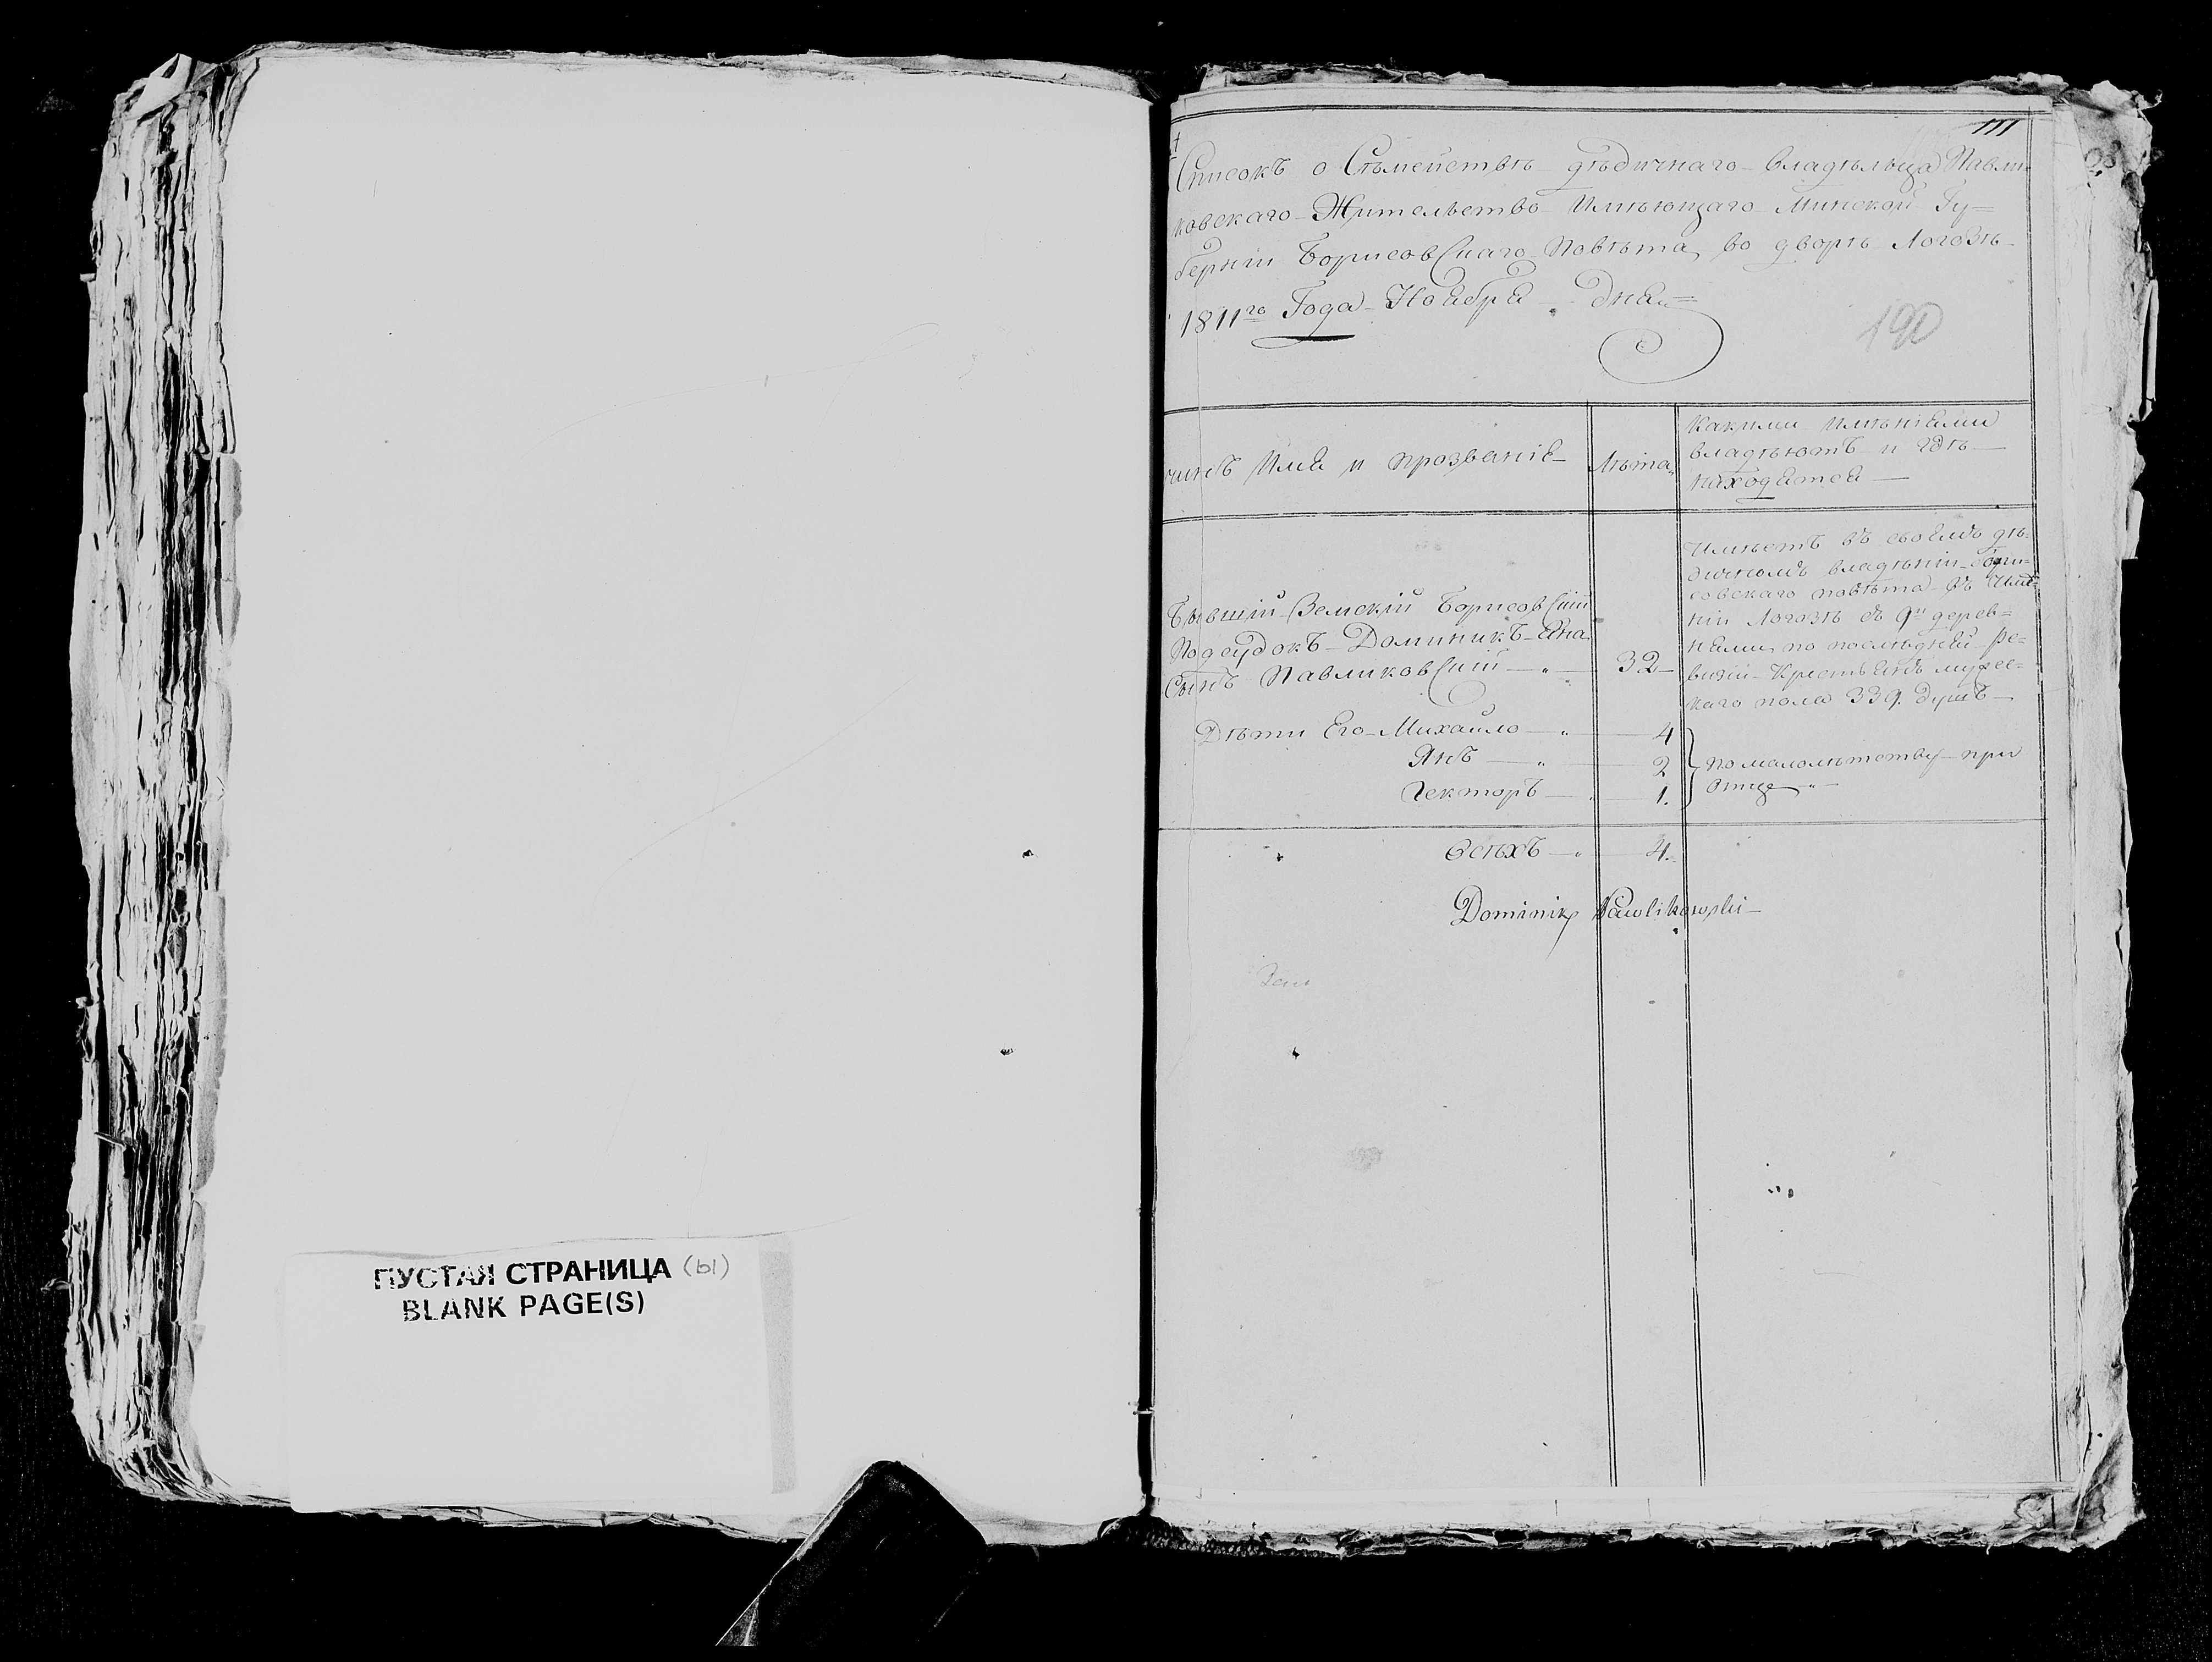 ПУСТАЯ СТРАНИЦА (Ы)
BLANK PAGE(S)
111
Списокъ о Сѣмействѣ дѣдичнаго владѣльца Павли-
ковскаго Жительство Имѣющаго Минской Гу=
берніи БорисовСкаго Повѣта во дворѣ Логозѣ
1811го Года Ноября дня=
190
чинъ Имя и прозваніе
Лѣта
Какими Имѣніями
владѣютъ и гдѣ
находятся
Бывшій Земскій БорисовСкій
Подсудокъ Доминикъ Яна
Сынъ ПавликовСкій 32
Имѣетъ въ своемъ дѣ=
дичномъ владѣніи Бори=
совскаго повѣта въ Имѣ=
ніи Логозѣ съ 9и дерев=
нями по послѣдней Ре=
визіи Крестьянъ мужес=
каго пола 339. душъ
Дѣти Его Михайло 4
Янъ 2
Гекторъ 1.
по малолѣтству при
Отце
Всѣхъ 4.
Dominik Pawlikowski